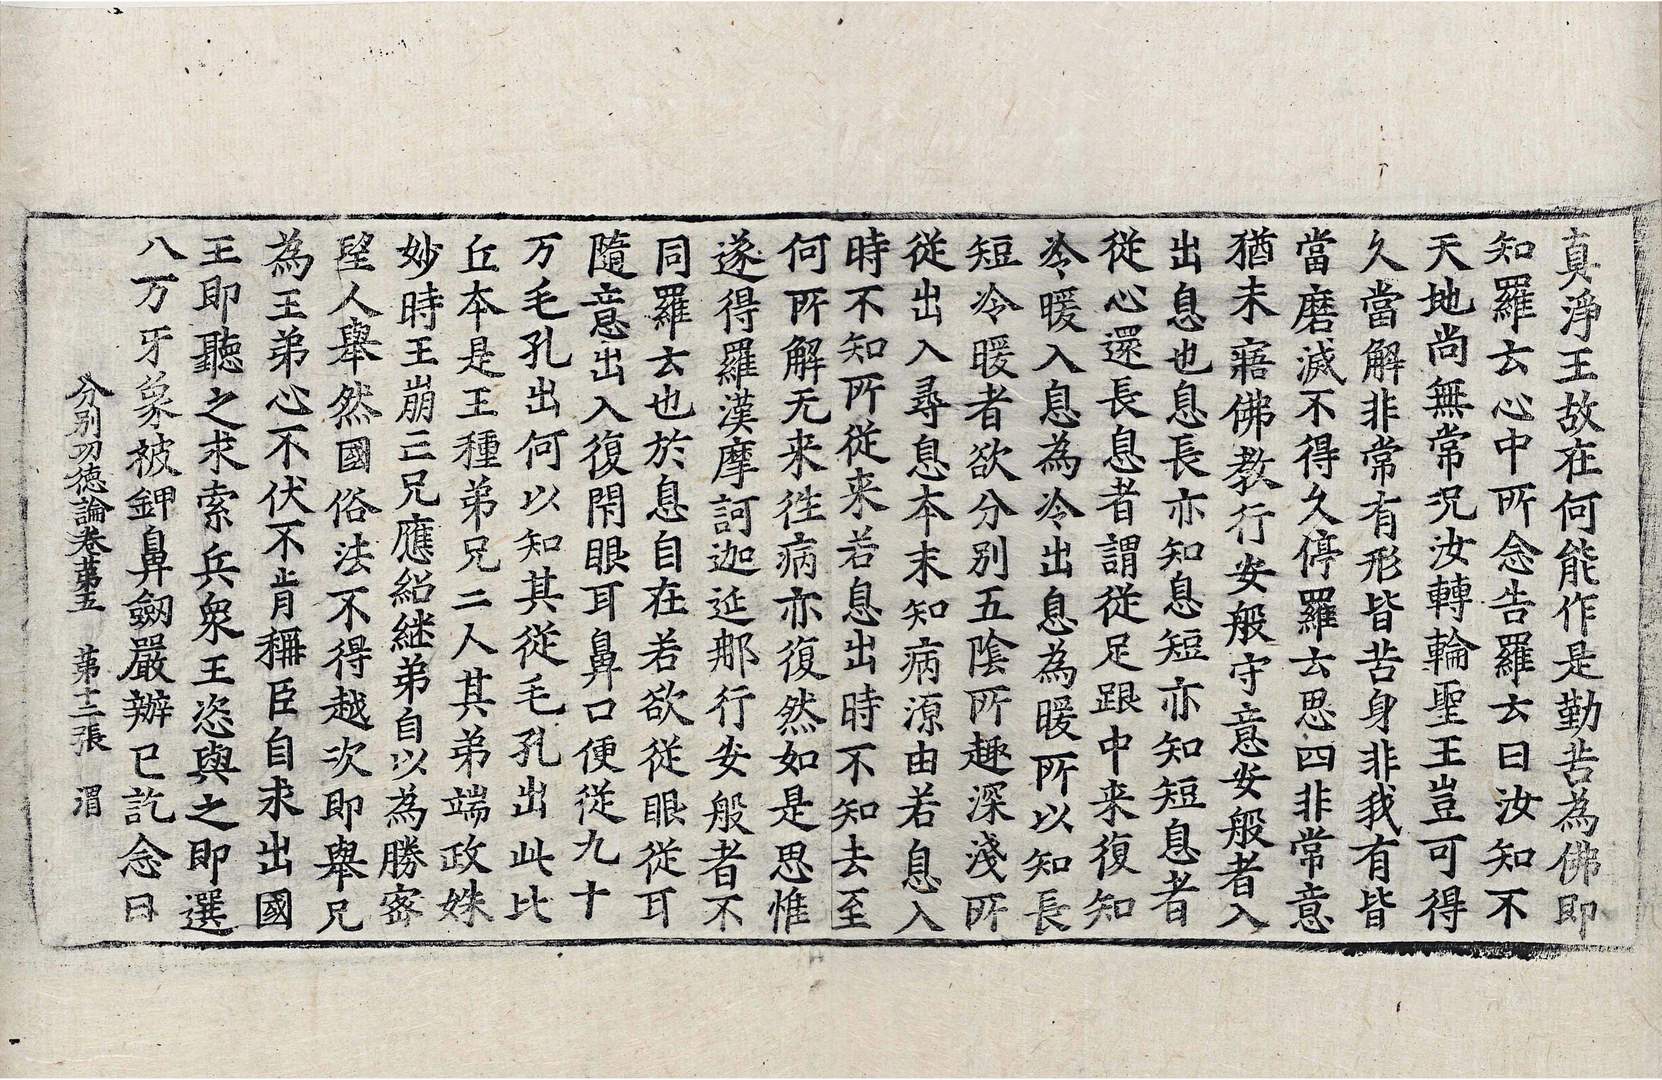 真淨王故在何能作是勤苦為佛即
知羅云心中所念告羅云曰汝知不
天地尚無常況汝轉輪聖王豈可得
久當解非常有形皆苦身非我有皆
當磨滅不得久停羅云思四非常意
猶未寤佛教行安般守意安般者入
出息也息長亦知息短亦知短息者
從心還長息者謂從足跟中来復知
冷暖入息為冷出息為暖所以知長
短冷暖者欲分別五陰所趣深淺所
從出入尋息本末知病源由若息入
時不知所從来若息出時不知去至
何所解无来徃病亦復然如是思惟
遂得羅漢摩訶迦延那行安般者不
同羅云也於息自在若欲從眼從耳
隨意出入復閇眼耳鼻口便從九十
万毛孔出何以知其從毛孔出此比
丘本是王種弟兄二人其弟端政姝
妙時王崩亡兄應紹継弟自以為勝密
望人舉然國俗法不得越次即舉兄
為王弟心不伏不肯稱臣自求出國
王即聽之求索兵衆王恣與之即選
八万牙象被鉀鼻劒嚴辦已訖念曰
分別功德論卷苐五　苐十二張　渭